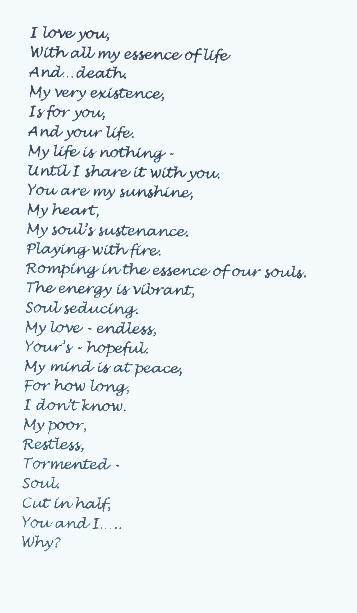 I love you,
With all my essence of life
And...death.
My very existence,
Is for you,
And your life.
My life is nothing -
Until I share it with you.
You are my sunshine,
My heart,
My soul's sustenance.
Playing with fire.
Romping in the essence of our souls.
The energy is vibrant,
Soul seducing.
My love - endless,
Your's - hopeful.
My mind is at peace,
For how long,
I don't know.
My poor,
Restless,
Tormented -
Soul.
Cut in half,
You and I.....
Why?